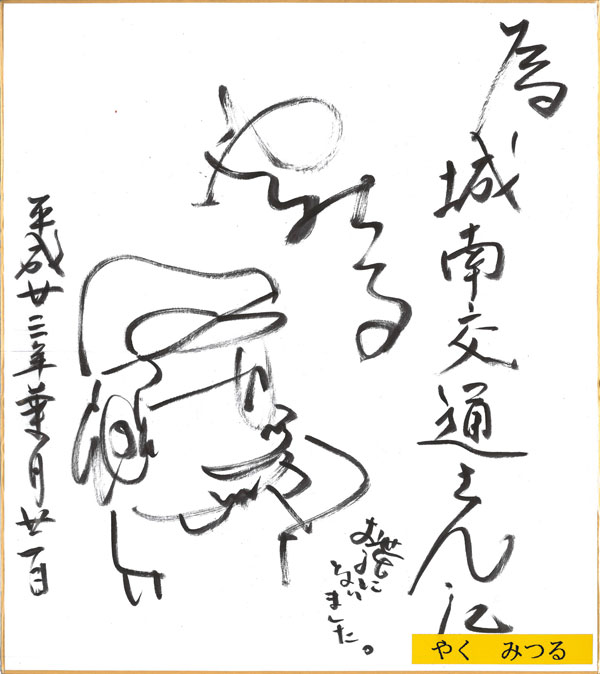 為
城南交通さん江
やくみつる
お世話に
なり
ました。
平成廿三年葉月廿一日
やく　みつる